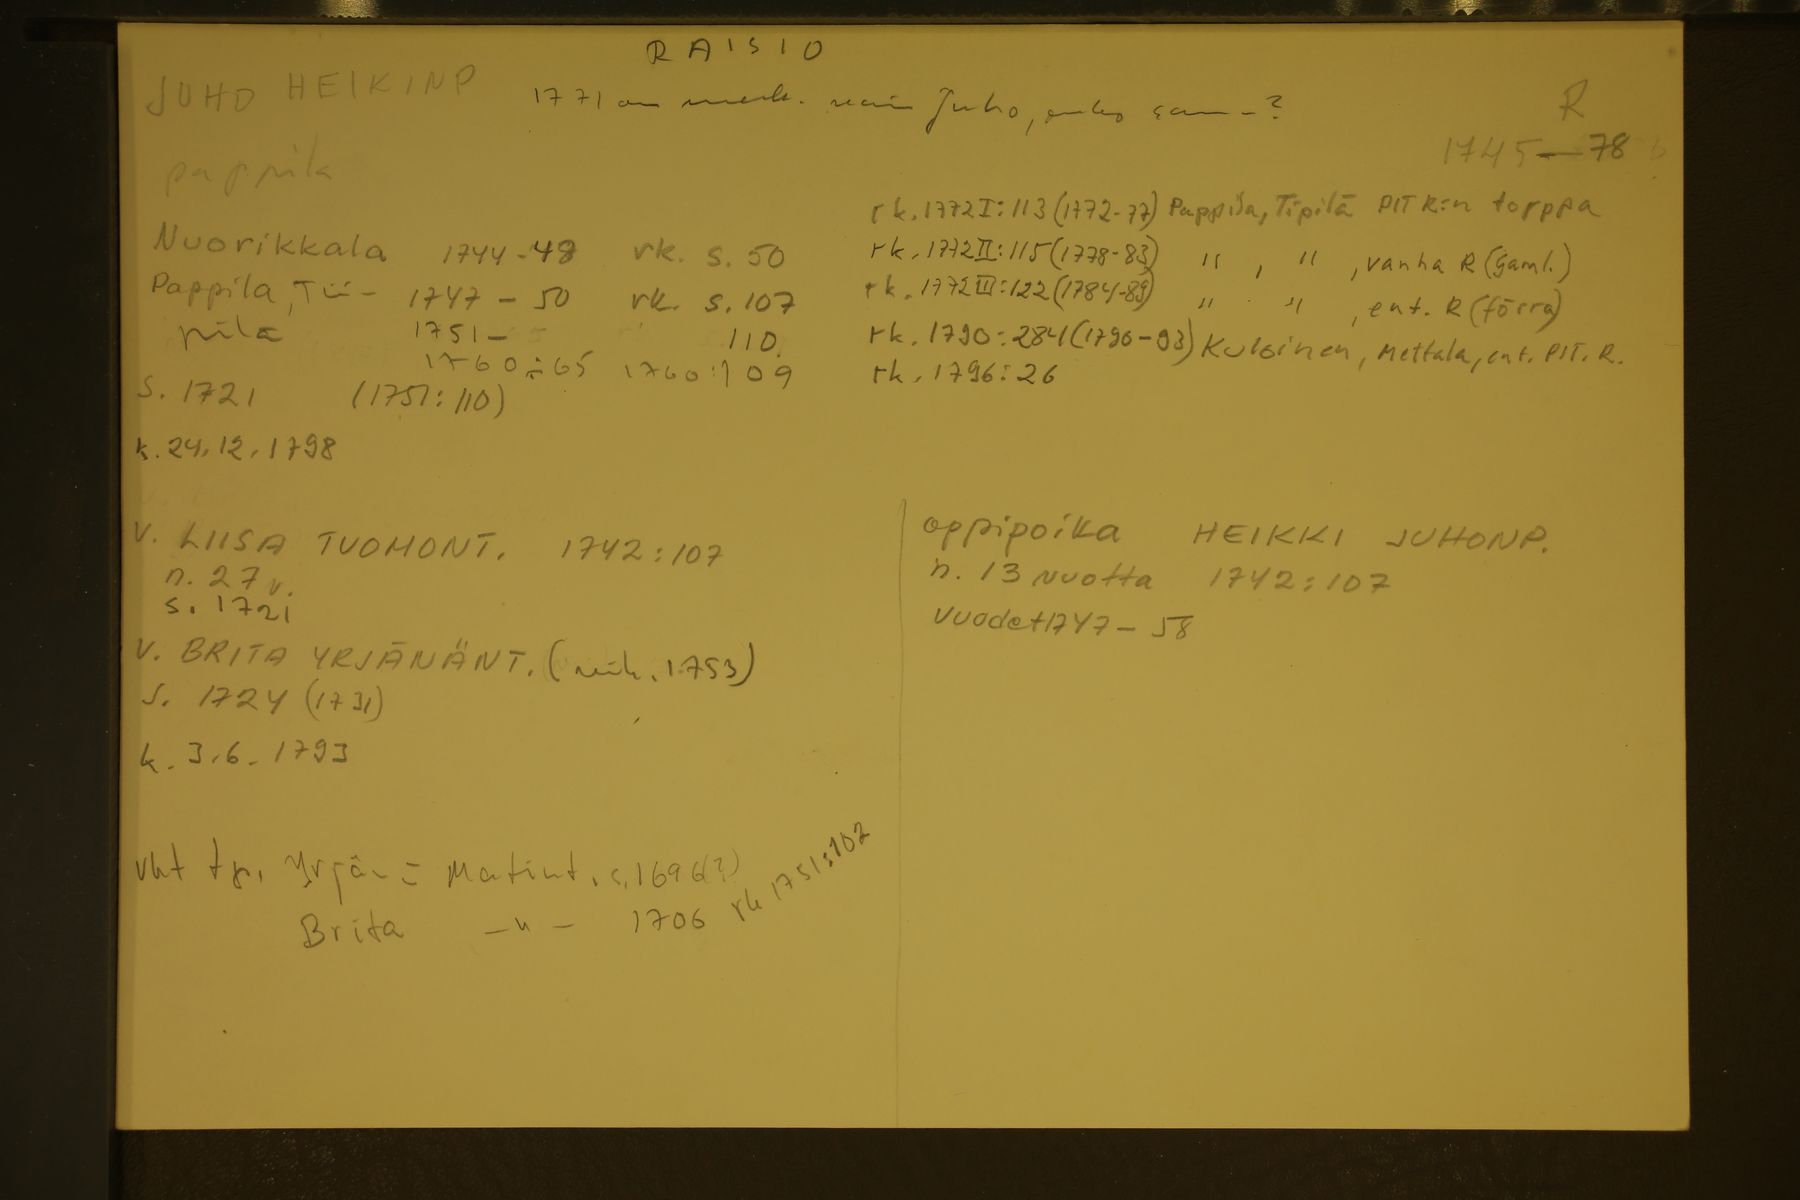 RAISIO
JUHO HEIKINP
1771 on merk. vain Juho, onko sama?
R
1745—78
pappila
Nuorikkala 1744-48 rk. s. 50
Pappila, Tii- 1747 - 50 rk. s. 107
pilä 1751- 110.
1760-65 1760:109
s. 1721 (1751:110)
k. 24.12.1798
rk. 1772 I:113 (1772-77) Pappila, Tipilä PIT R:n torppa
rk. 1772 II:115 (1778-83) " , " , vanha R (gaml.)
rk. 1772 III:122 (1784-89) " " , ent. R (förra)
rk. 1790:284 (1790-93) Kuloinen, Mettala, ent. PIT. R.
rk. 1796:26
V. LIISA TUOMONT. 1742:107
n. 27 v.
s. 1721
V. BRITA YRJÄNÄNT. (vih. 1753)
s. 1724 (1731)
k. 3.6. 1793
vht tp. Yrjänä Matint. s. 1696(?)
Brita —"— 1706 rk 1751:102
oppipoika HEIKKI JUHONP.
n. 13 vuotta 1742:107
vuodet 1747 - 58